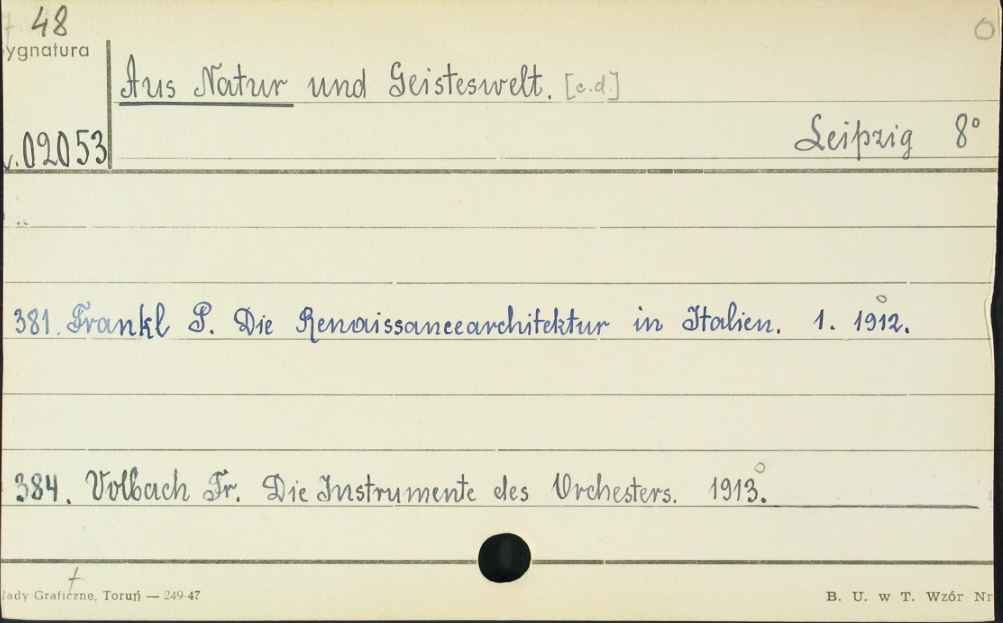 48
ygnatura
Aus Natur und Geisteswelt. [c.d.]
Leipzig 8°
v.02053
381. Frankl P. Die Renaissancearchitektur in Italien. 1. 1912.
384. Volbach Fr. Die Instrumente des Orchesters. 1913.
łady Graficzne, Toruń — 249-47
B. U. w T. Wzór Nr